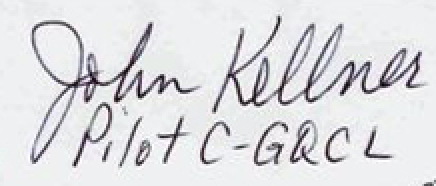 John Kellner
Pilot C-GQCL